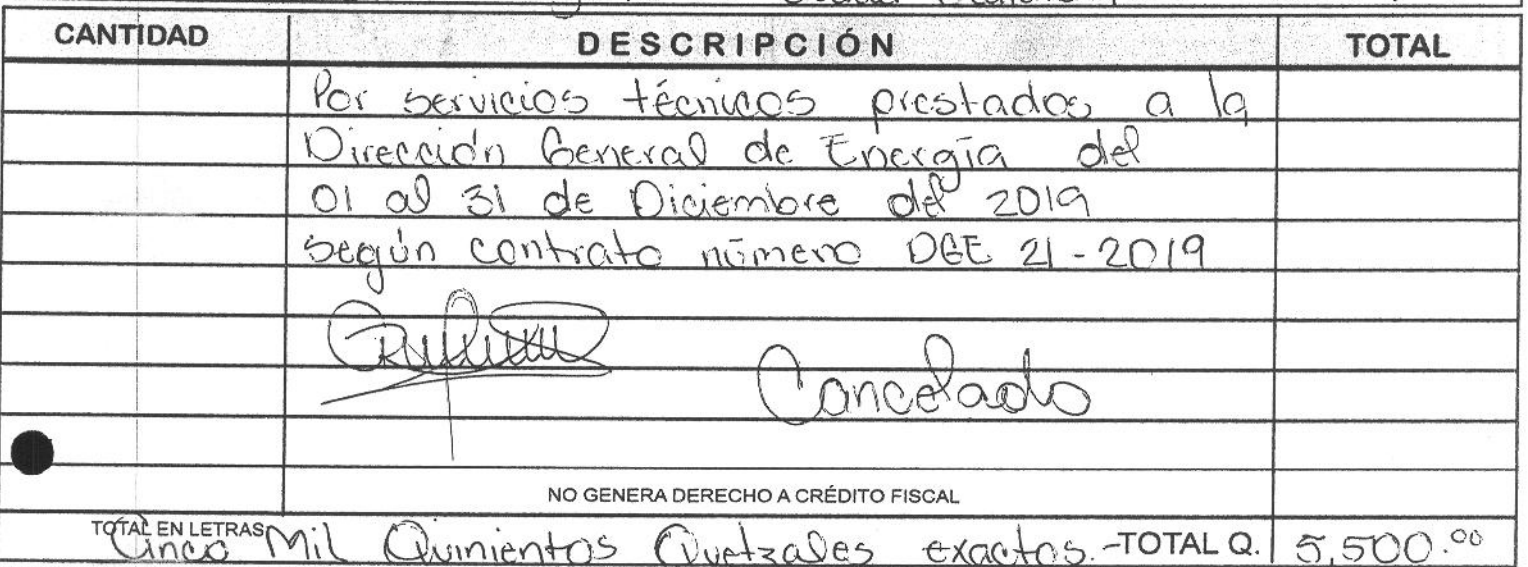 CANTIDAD DESCRIPCIÓN TOTAL
Por servicios técnicos prestados a la
Dirección General de Energía del
01 al 31 de Diciembre del 2019
según contrato número DGE 21-2019
Cancelado
NO GENERA DERECHO A CRÉDITO FISCAL
TOTAL EN LETRAS Cinco Mil Quinientos Quetzales exactos.- TOTAL Q. 5,500.00